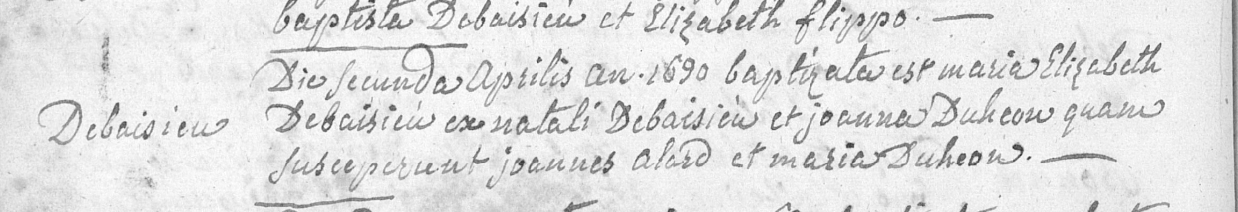 baptista Debaisieu et Elizabeth flippo. —
Die secunda Aprilis an. 1690 baptizata est maria Elizabeth
Debaisieu
Debaisiéu ex natali Debaisiéu et joanna Duheon quam
susceperunt joannes alard et maria Duheon. —